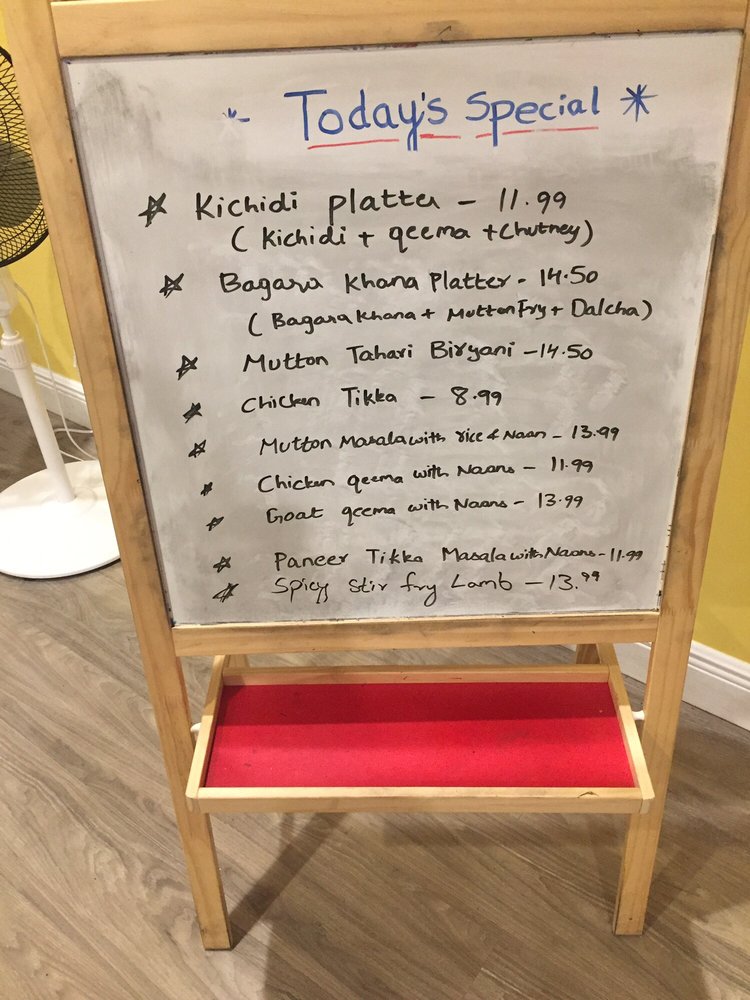 Today's Special
Kichidi Platter - 11.99
(Kichidi + qeema + Chutney)
Bagara Khana Platter - 14.50
(Bagara Khana + Mutton Fry + Dalcha)
Mutton Tahari Biryani - 14.50
Chicken Tikka - 8.99
Mutton Masala with rice & Naan - 13.99
Chicken qeema with Naans - 11.99
Goat qeema with Naans - 13.99
Paneer Tikka Masala with Naans - 11.99
Spicy Stir fry Lamb - 13.99